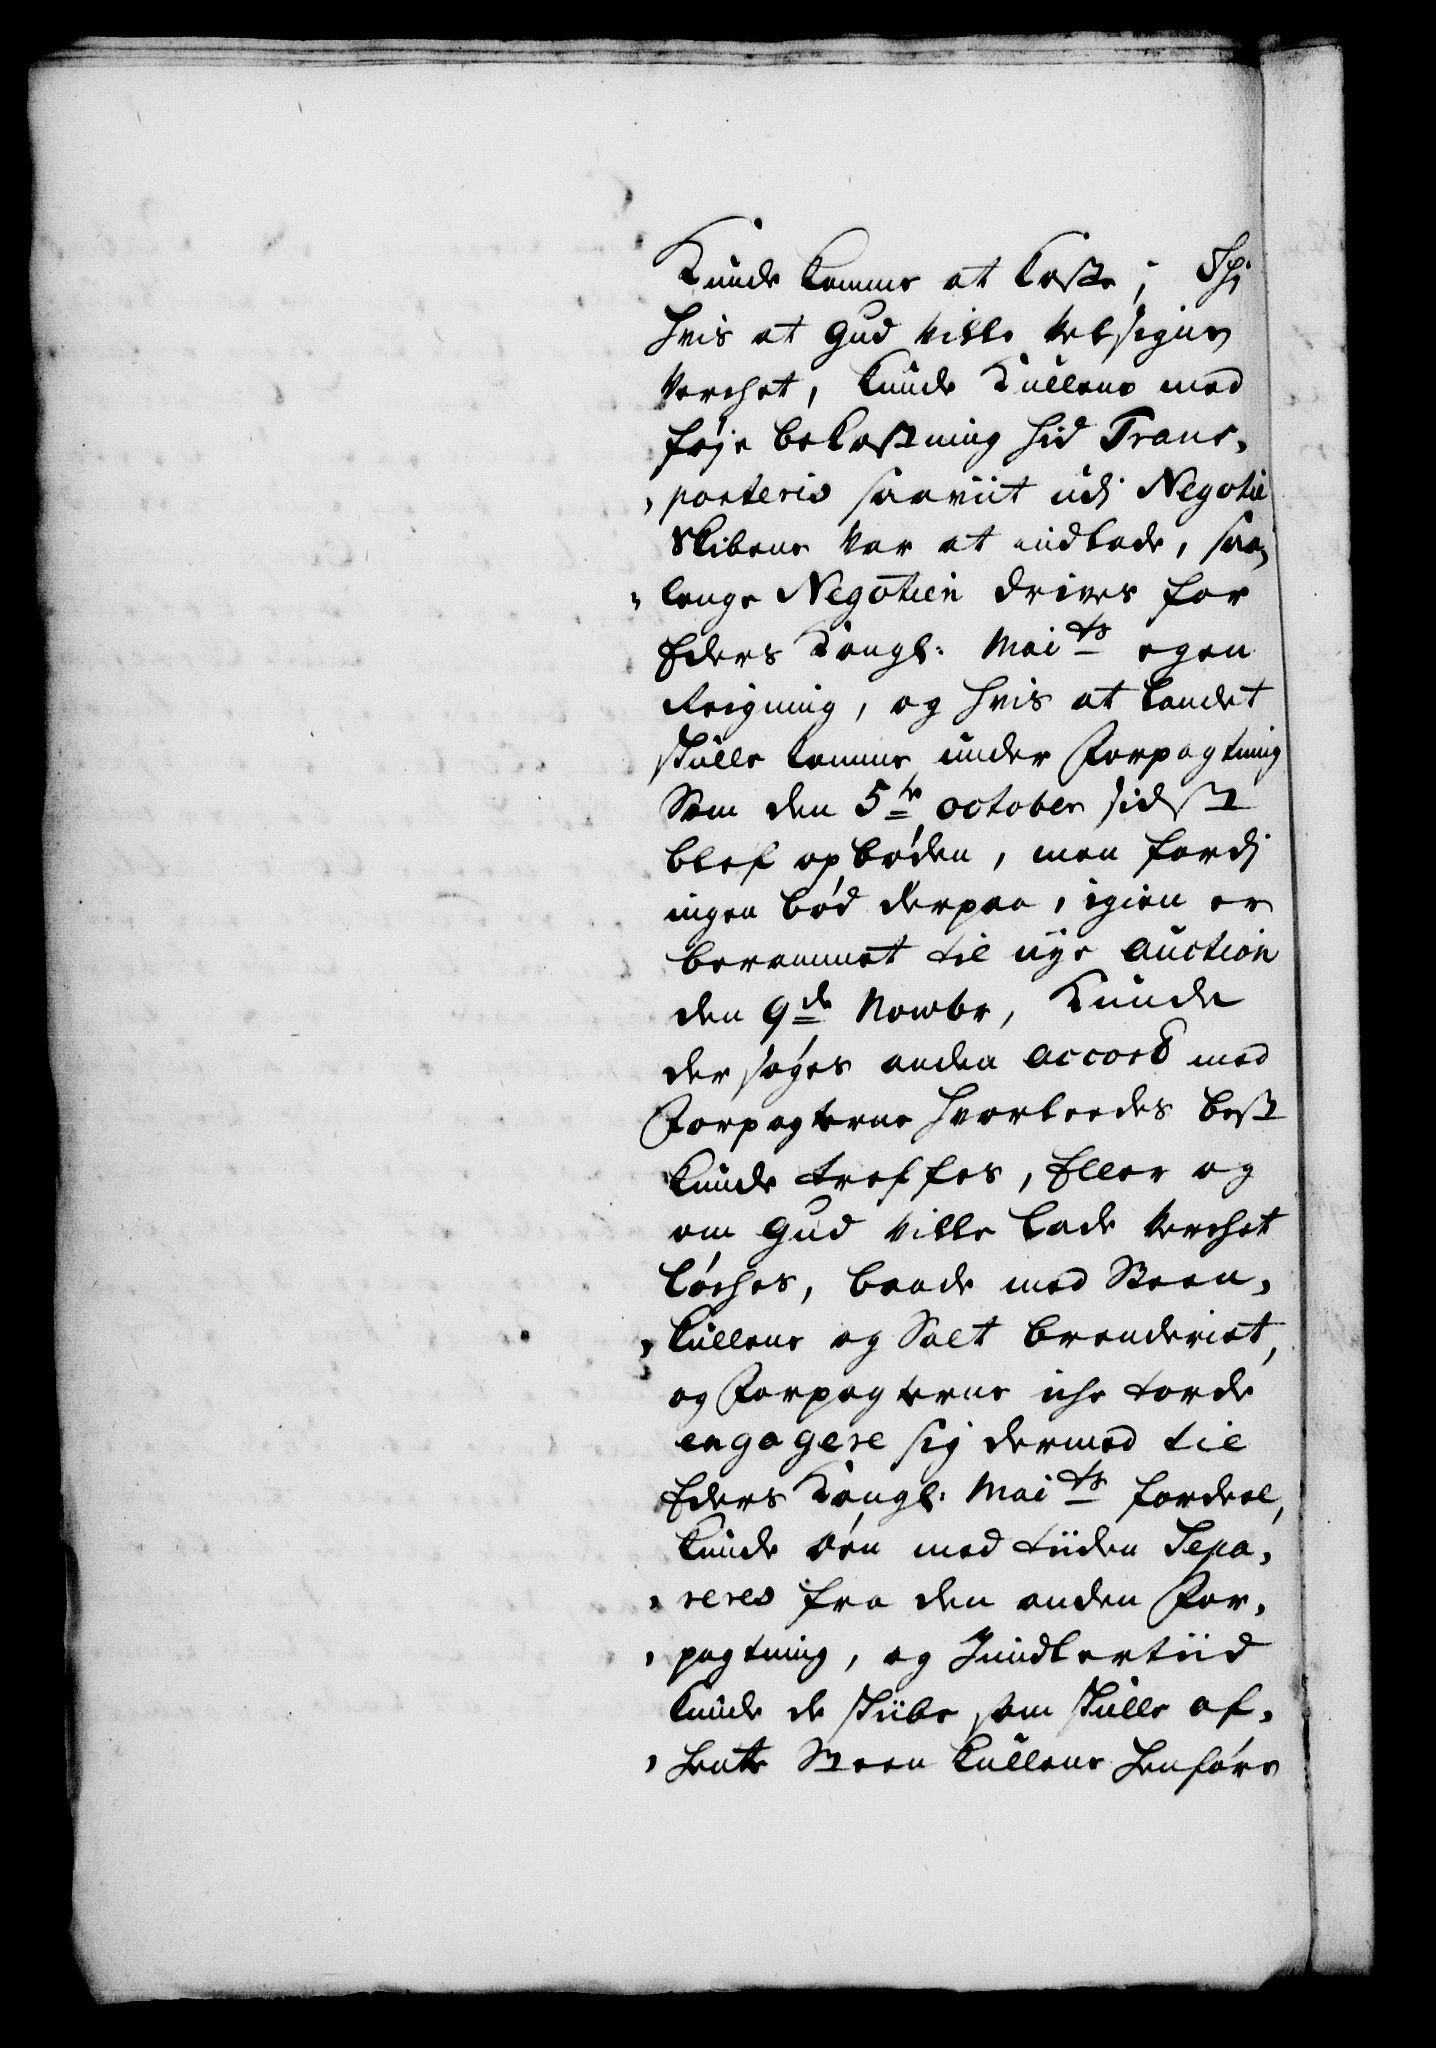 Kunde komme at koste; Thi
hvis at Gud ville velsigne
verchet, kunde Kullene med
føje bekostning hid Trans-
-porteris saaviit udj Negotie
Skibene var at indlade, saa-
-lenge Negotien drives for
Eders Kongl: Mai<sup>ts</sup> egen
Reigning, og hvis at landet
skulle komme under Forpagtning
Som den 5<sup>te</sup> october sidst
blef opbøden, men fordj
ingen bød derpaa, igien er
berammet til nye auction
den 9<sup>de</sup> Novvbr, Kunde
der søges anden accord med
Forpagterne hvorleedes best
kunde treffes, Eller og
om Gud ville lade verchet
løches, baade med Steen-
-kullene og Salt brenderiet,
og Forpagterne iche torde
engagere sig dermed til
Eders Kongl: Mai<sup>ts</sup> fordeel,
kunde øen med tiiden Sepa-
-reres fra den anden For-
-pagtning, og Imidlertiid
kunde de skibe som skulle af-
-hente Steen kullene henføre